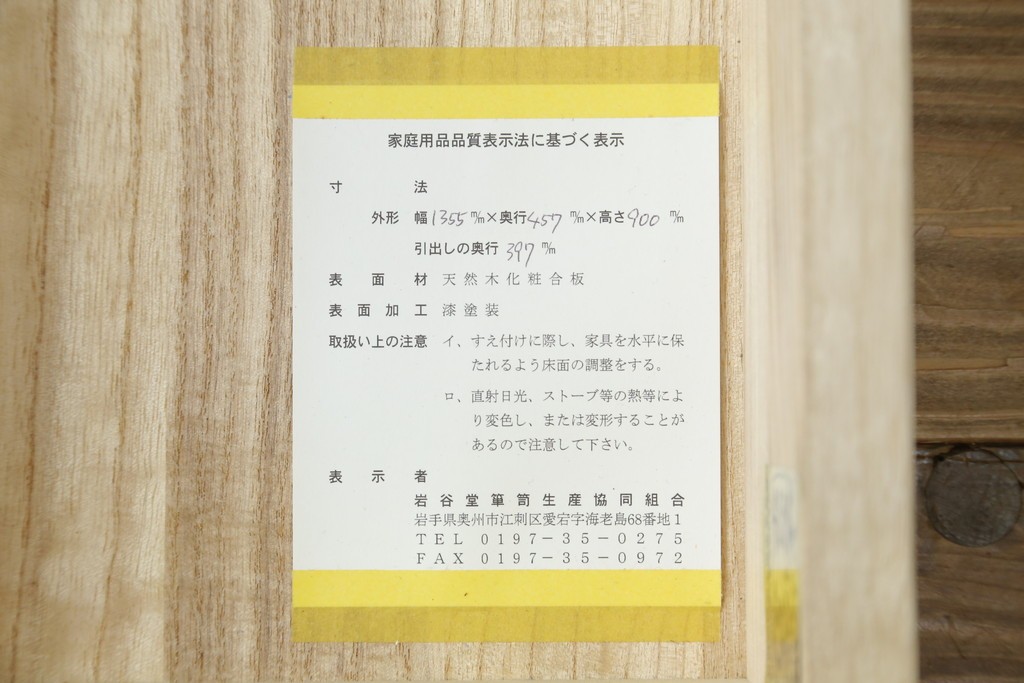 家庭用品品質表示法に基づく表示
寸法
外形 幅1355㎜×奥行457㎜×高さ900㎜
引出しの奥行 397㎜
表面材 天然木化粧合板
表面加工 漆塗装
取扱い上の注意 イ、すえ付けに際し、家具を水平に保
たれるよう床面の調整をする。
ロ、直射日光、ストーブ等の熱等によ
り変色し、または変形することが
あるので注意して下さい。
表示者
岩谷堂箪笥生産協同組合
岩手県奥州市江刺区愛宕字海老島68番地1
TEL 0197-35-0275
FAX 0197-35-0972